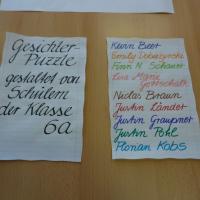 Gesichter-
Puzzle
gestaltet von
Schülern
der Klasse
6a
Kevin Beer
Emily Dobrzynski
Finn N. Schauer
Lisa Marie
Gottschalk
Niclas Braun
Justin Länder
Justin Graupner
Justin Pohl
Florian Kobs